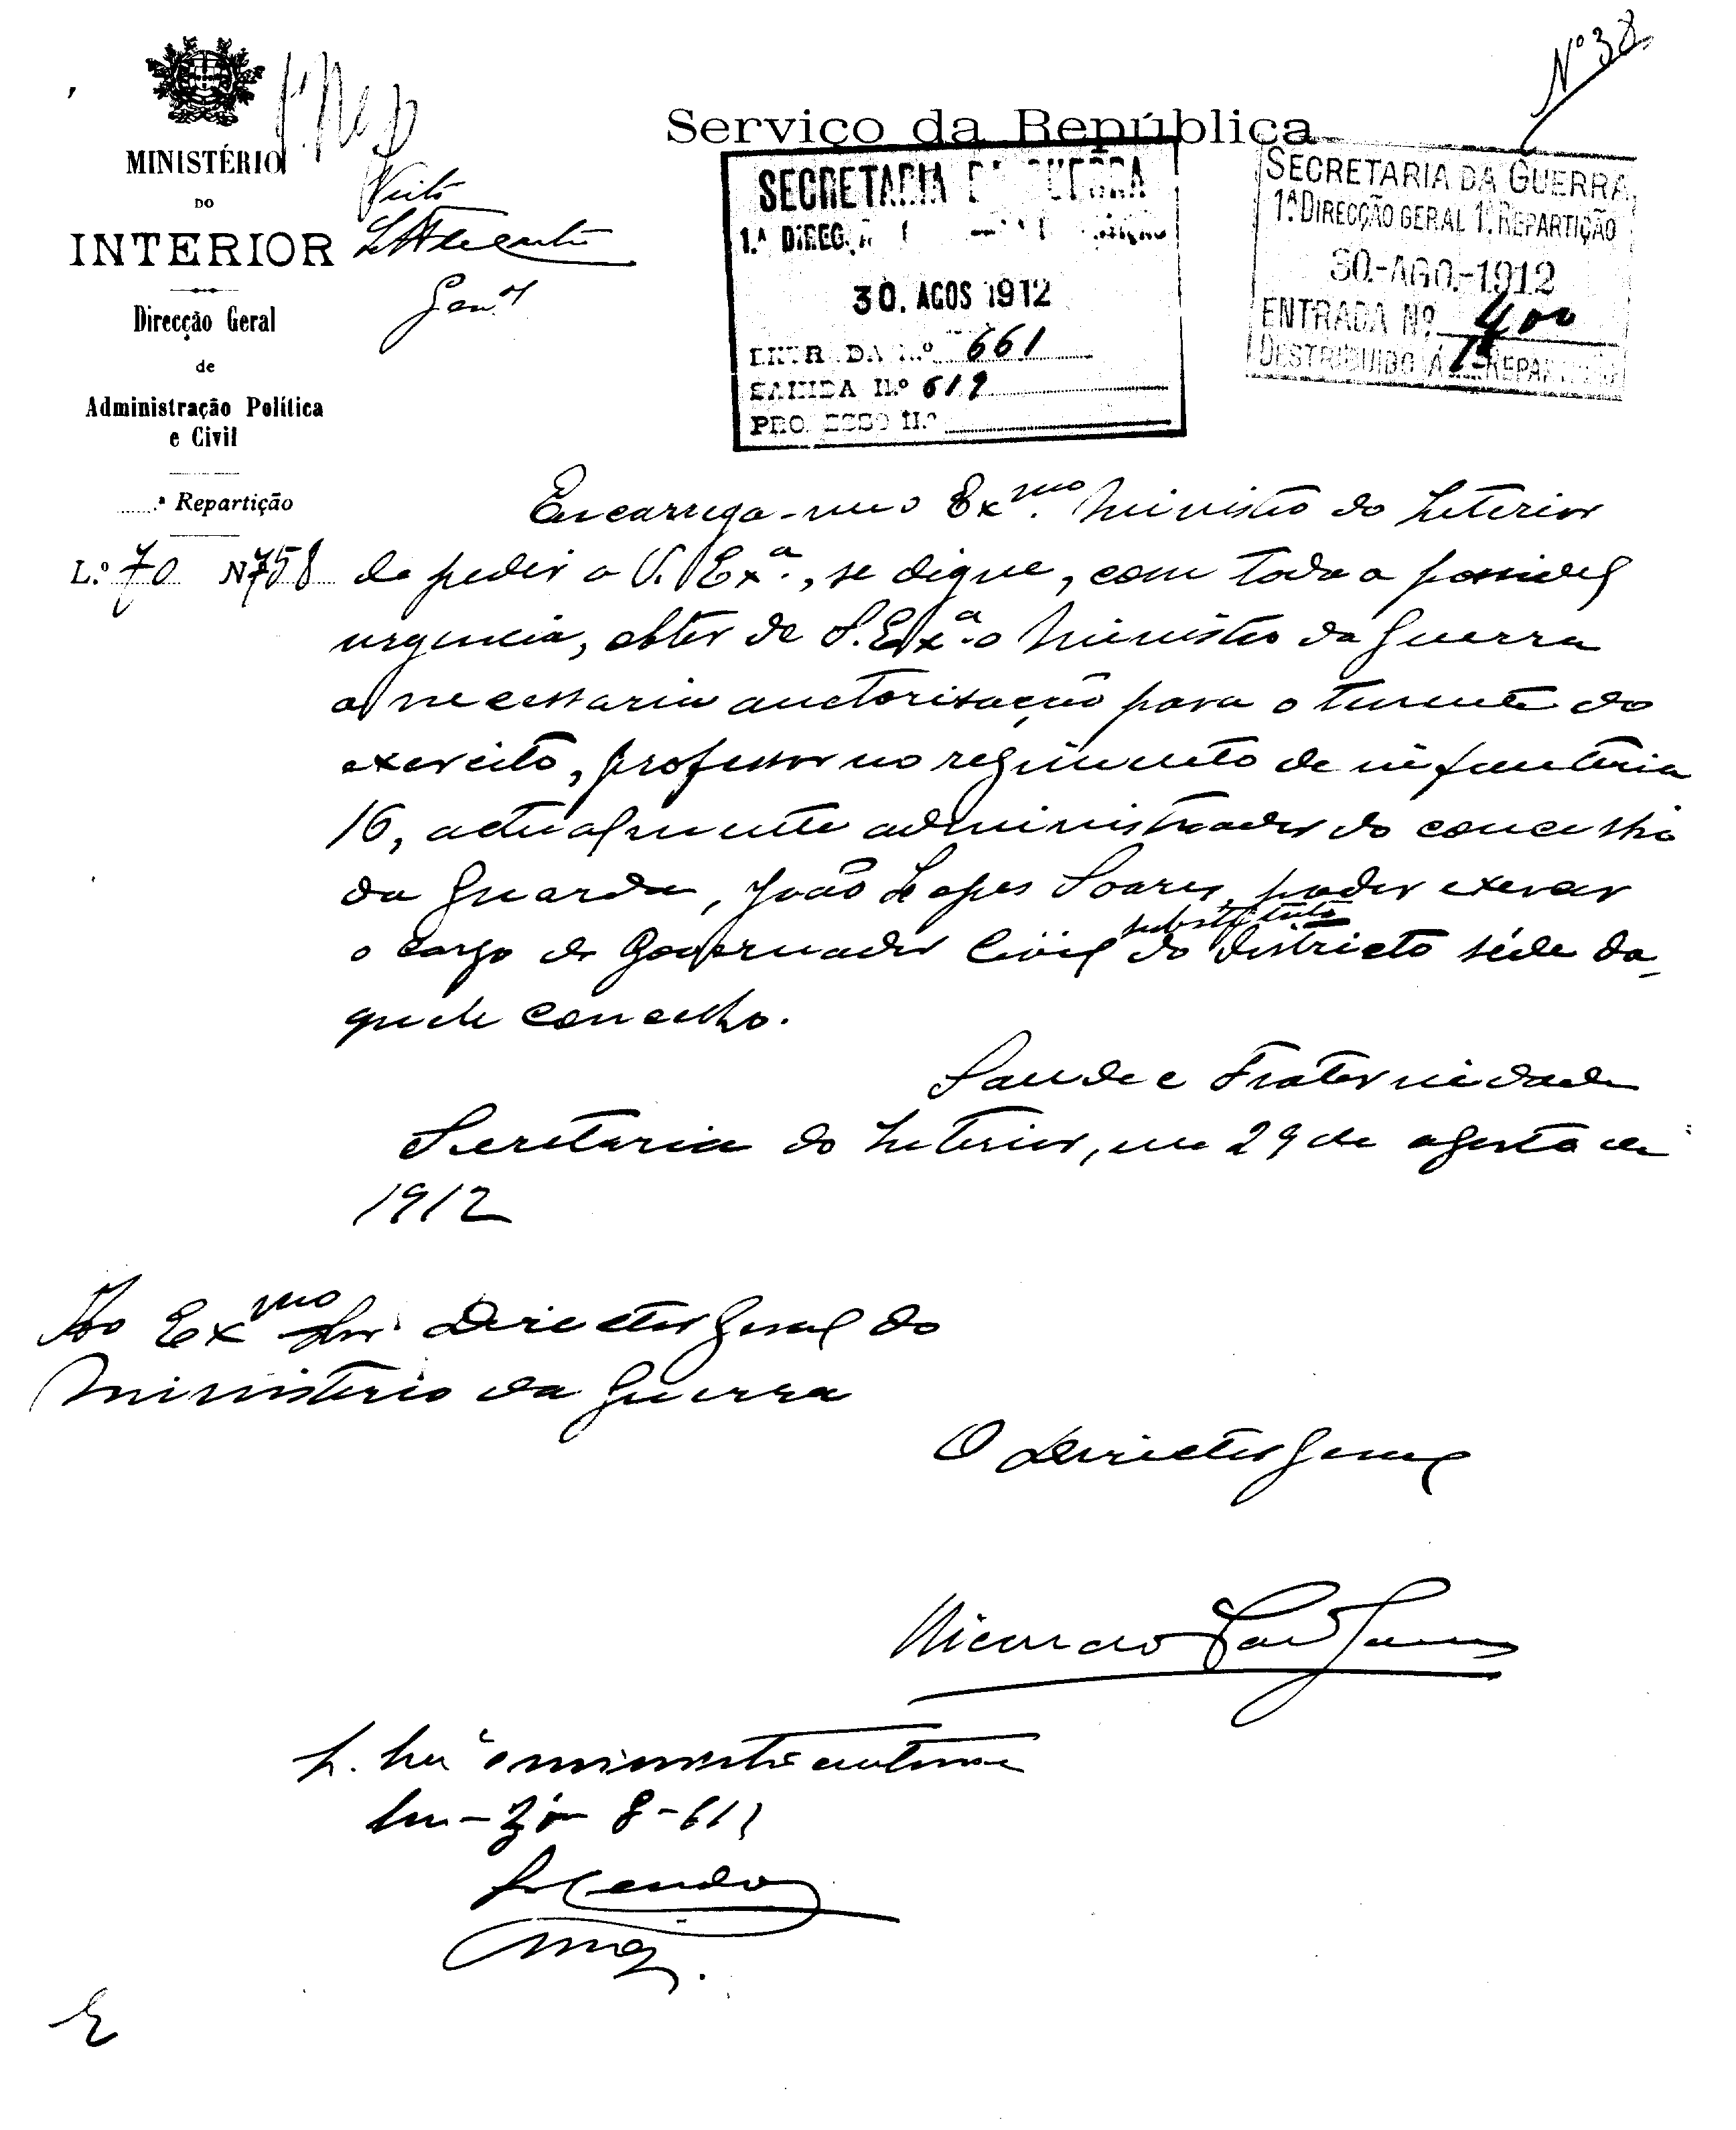 Nº 38
Serviço da República
MINISTÉRIO
DO
INTERIOR
Direcção Geral
de
Administração Política
e Civil
.ª Repartição
L.º 70 Nº 758
1ª Rep
Visto
Gen.al
SECRETARIA DA GUERRA
1.ª DIRECÇÃO
30. AGOS 1912
ENTRADA N.º 661
SAHIDA N.º 619
PROCESSO N.º
SECRETARIA DA GUERRA
1.ª DIRECÇÃO GERAL 1.ª REPARTIÇÃO
30.-AGO.-1912
ENTRADA Nº 400
DESTRIBUIDO Á 1ª REPARTIÇÃO
Encarrega-me o Exmo. Ministro do Interior
de pedir a V. Exª., se digne, com toda a possivel
urgencia, obter de S. Exª. o Ministro da Guerra
a necessaria auctorisação para o tenente do
exercito, professor no regimento de infanteria
16, actualmente administrador do concelho
da Guarda, João Lopes Soares, poder exercer
o cargo de Governador Civil substituto do districto séde da-
quele concelho.
Saude e Fraternidade
Secretaria do Interior, em 29 de agosto de
1912
Ao Exmo Snr. Director Geral do
Ministerio da Guerra
O Director Geral
Ricardo Paes Gomes